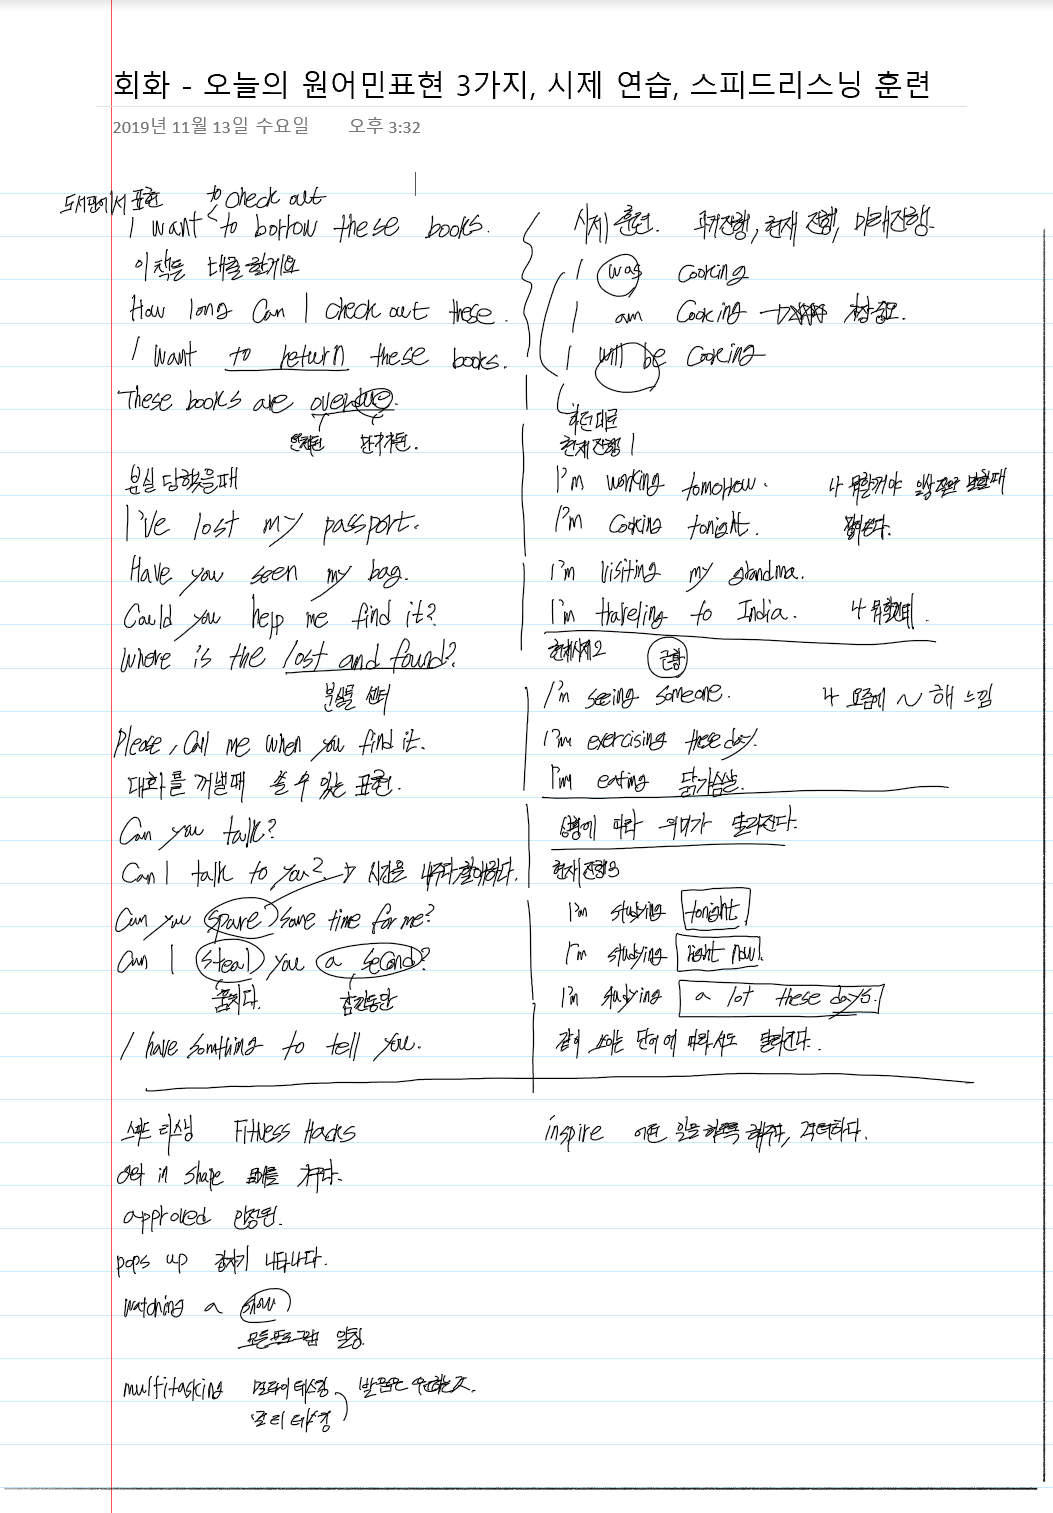 회화 - 오늘의 원어민표현 3가지, 시제 연습, 스피드리스닝 훈련
2019년 11월 13일 수요일 오후 3:32
도서관에서 표현 to check out
I want to borrow these books.
이 책들 대출할게요
How long can I check out these.
I want to return these books.
These books are overdue.
분실 당했을때
I've lost my passport.
Have you seen my bag.
Could you help me find it?
Where is the lost and found?
분실물 센터
Please, Call me when you find it.
대화를 꺼낼때 쓸 수 있는 표현.
Can you talk?
Can I talk to you? → 시간을 내주다, 할애하다.
Can you spare some time for me?
Can I steal you a second?
훔치다. 잠깐동안
I have something to tell you.
시제 훈련. 과거진행, 현재 진행, 미래진행.
I was cooking
I am cooking →
I will be cooking
현재 진행 1
I'm working tomorrow. 나 뭐할꺼야
I'm cooking tonight.
I'm visiting my grandma.
I'm traveling to India.
현재시제 2 근황
I'm seeing someone. 나 요즘에 ~ 해 느낌
I'm exercising these day.
I'm eating 닭가슴살.
상황에 따라 의미가 달라진다.
현재진행 3
I'm studying tonight.
I'm studying right now.
I'm studying a lot these days.
같이 쓰이는 단어에 따라서도 달라진다.
스피드 리스닝 Fitness Hacks
Get in shape 몸매를 가꾸다.
approved 인정된.
pops up 갑자기 나타나다.
watching a show
모든프로그램 일칭.
multitasking 멀타이태스킹
멀티태스킹
inspire 어떤 일을 하도록 해주다, 격려하다.